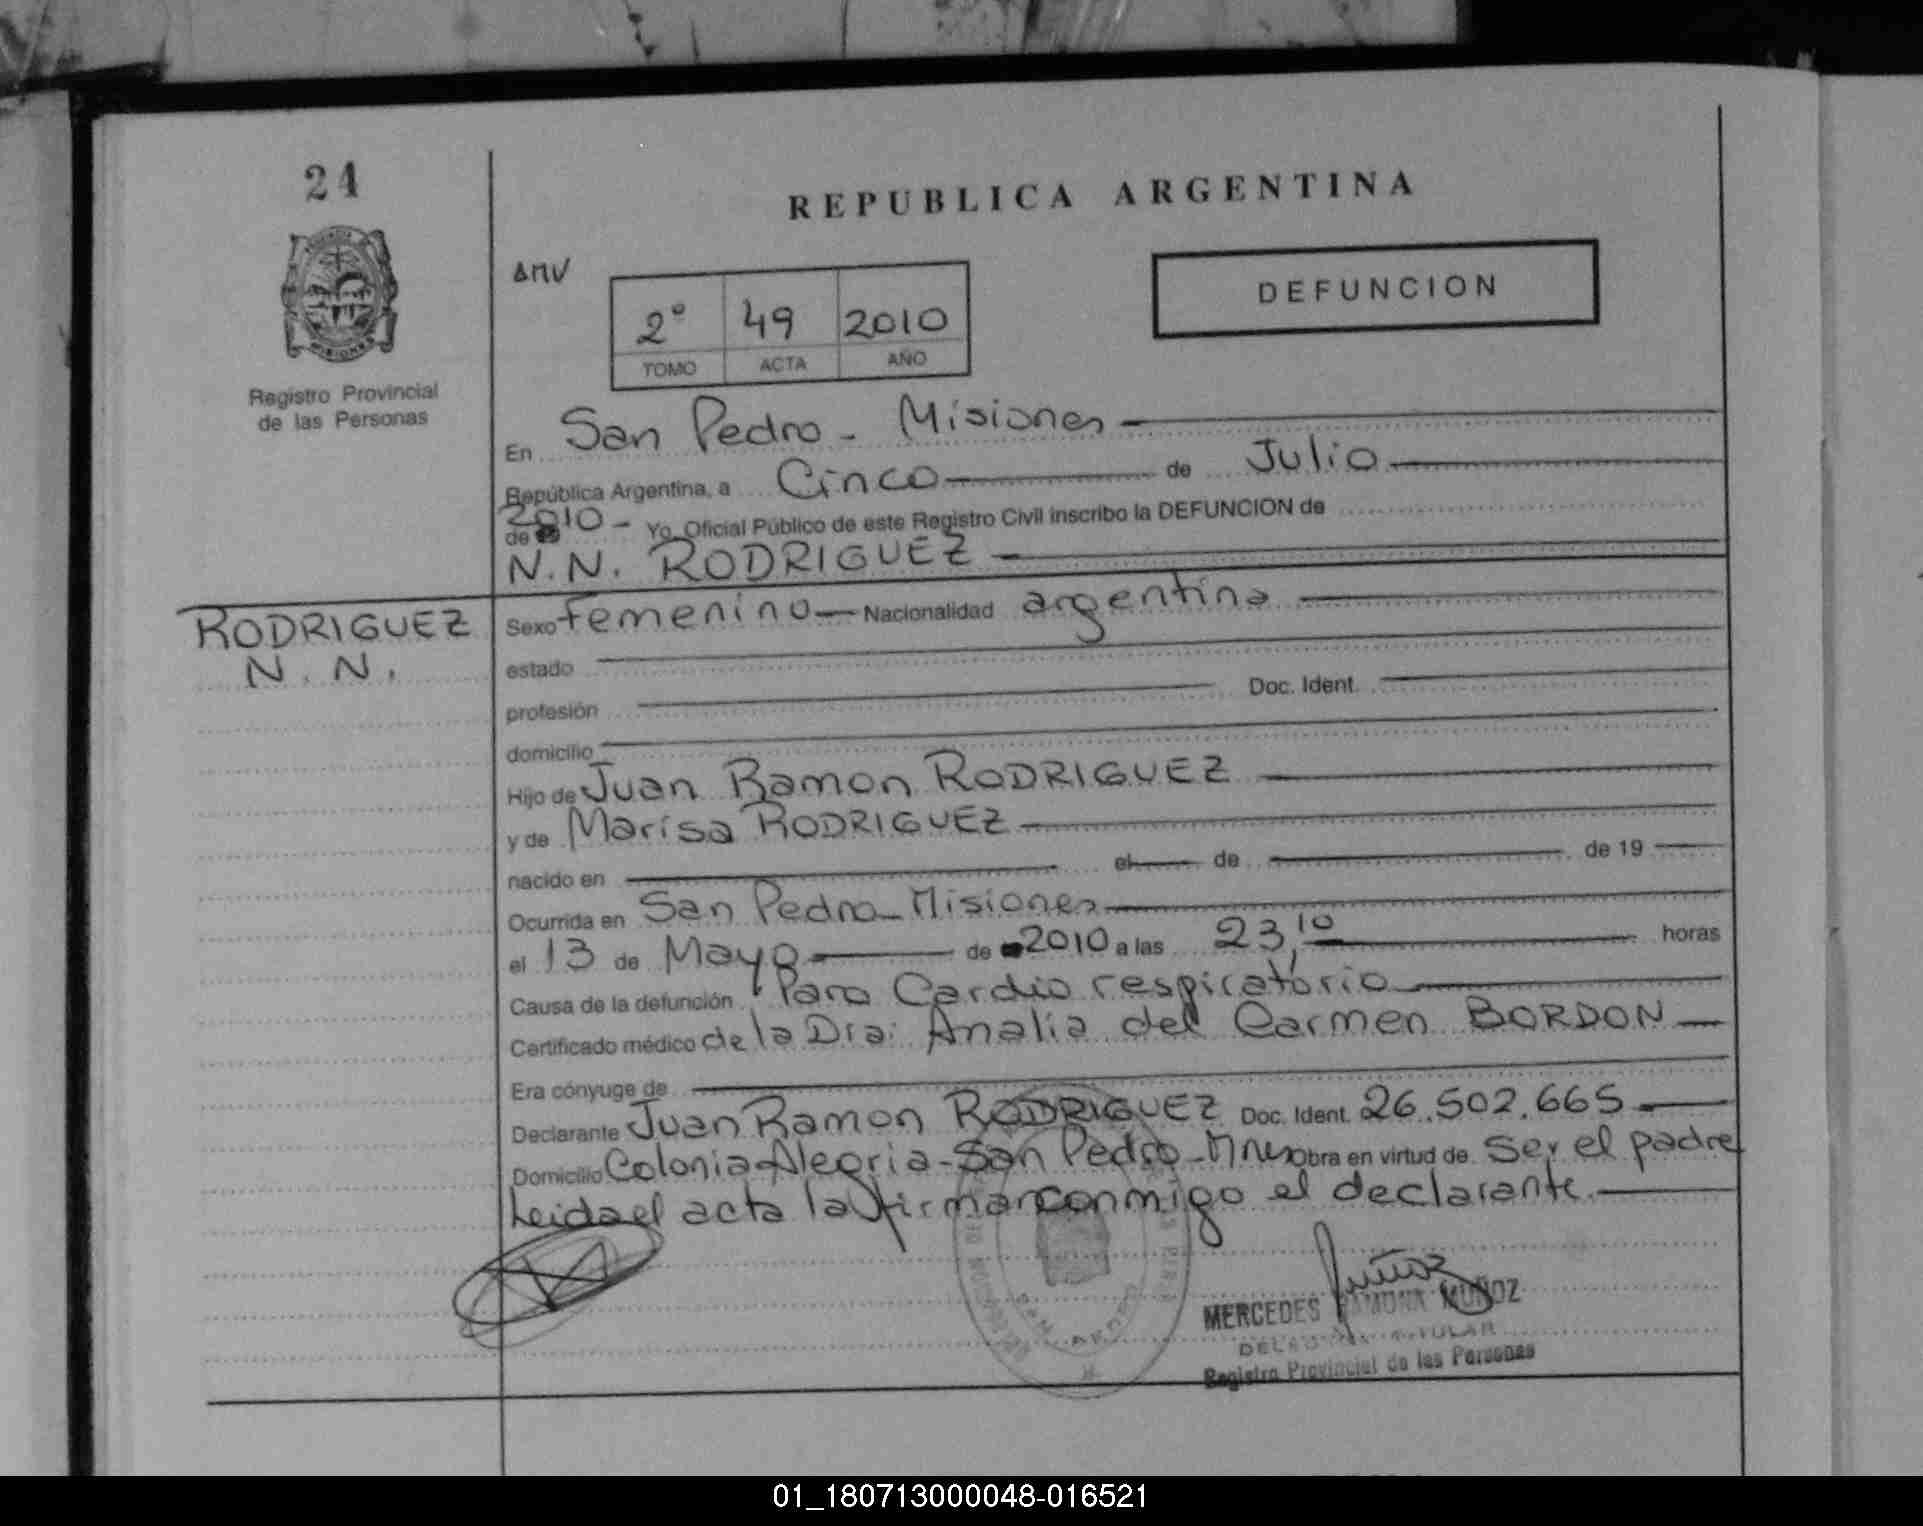 24
REPUBLICA ARGENTINA
PROVINCIA
MISIONES
Registro Provincial
de las Personas
DEFUNCION
2° 49 2010
TOMO ACTA AÑO
En San Pedro - Misiones
República Argentina, a Cinco de Julio
de 2010 - Yo, Oficial Público de este Registro Civil inscribo la DEFUNCION de
N.N. RODRIGUEZ
RODRIGUEZ
N. N.
Sexo Femenino Nacionalidad argentina
estado
profesión Doc. Ident.
domicilio
Hijo de Juan Ramon RODRIGUEZ
y de Marisa RODRIGUEZ
nacido en el de de 19
Ocurrida en San Pedro - Misiones
el 13 de Mayo de 2010 a las 23,10 horas
Causa de la defunción Paro Cardio respiratorio
Certificado médico de la Dra: Analia del Carmen BORDON
Era cónyuge de
Declarante Juan Ramon RODRIGUEZ Doc. Ident. 26.502.665
Domicilio Colonia Alegria - San Pedro - Mnes obra en virtud de ser el padre
Leida el acta la firman conmigo el declarante.
Muñoz
MERCEDES RAMONA MUÑOZ
Registro Provincial de las Personas
01_180713000048-016521